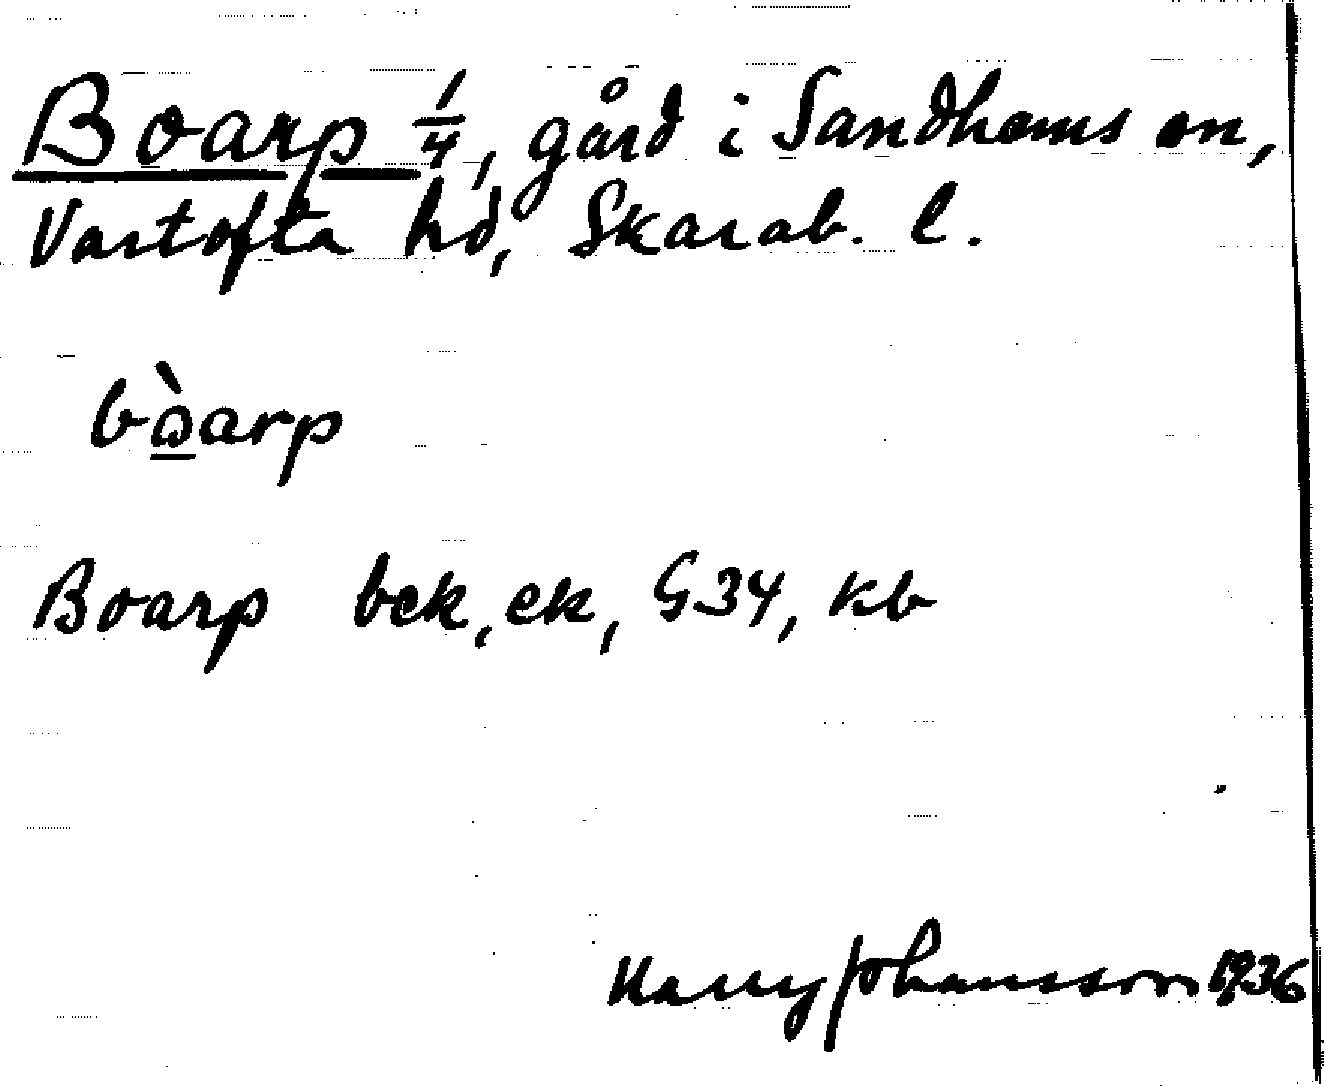 Boarp 1/4, gård i Sandhems sn,
Vartofta hd, Skarab. l.
bòarp
Boarp bek, ek, G34, kb
Harry Johansson 1936